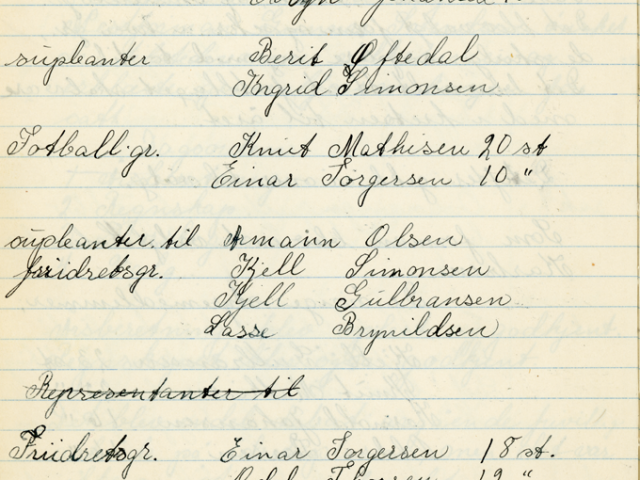 supleanter Berit Oftedal
Ingrid Simonsen
Fotball.gr. Knut Mathisen 20 st
Einar Torgersen 10 "
supleanter. til Armann Olsen
friidretsgr. Kjell Simonsen
Kjell Gulbransen
Lasse Brynildsen
Representanter til
Friidretsgr. Einar Torgersen 18 st.